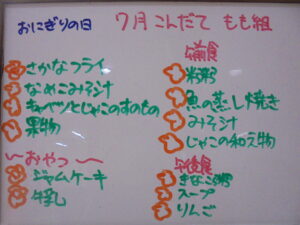 おにぎりの日
7月こんだて もも組
さかなフライ
なめこみそ汁
キャベツとじゃこのすのもの
果物
〜おやつ〜
ジャムケーキ
牛乳
午前食
粥
魚の蒸し焼き
みそ汁
じゃこの和え物
午後食
きなこ粥
スープ
りんご